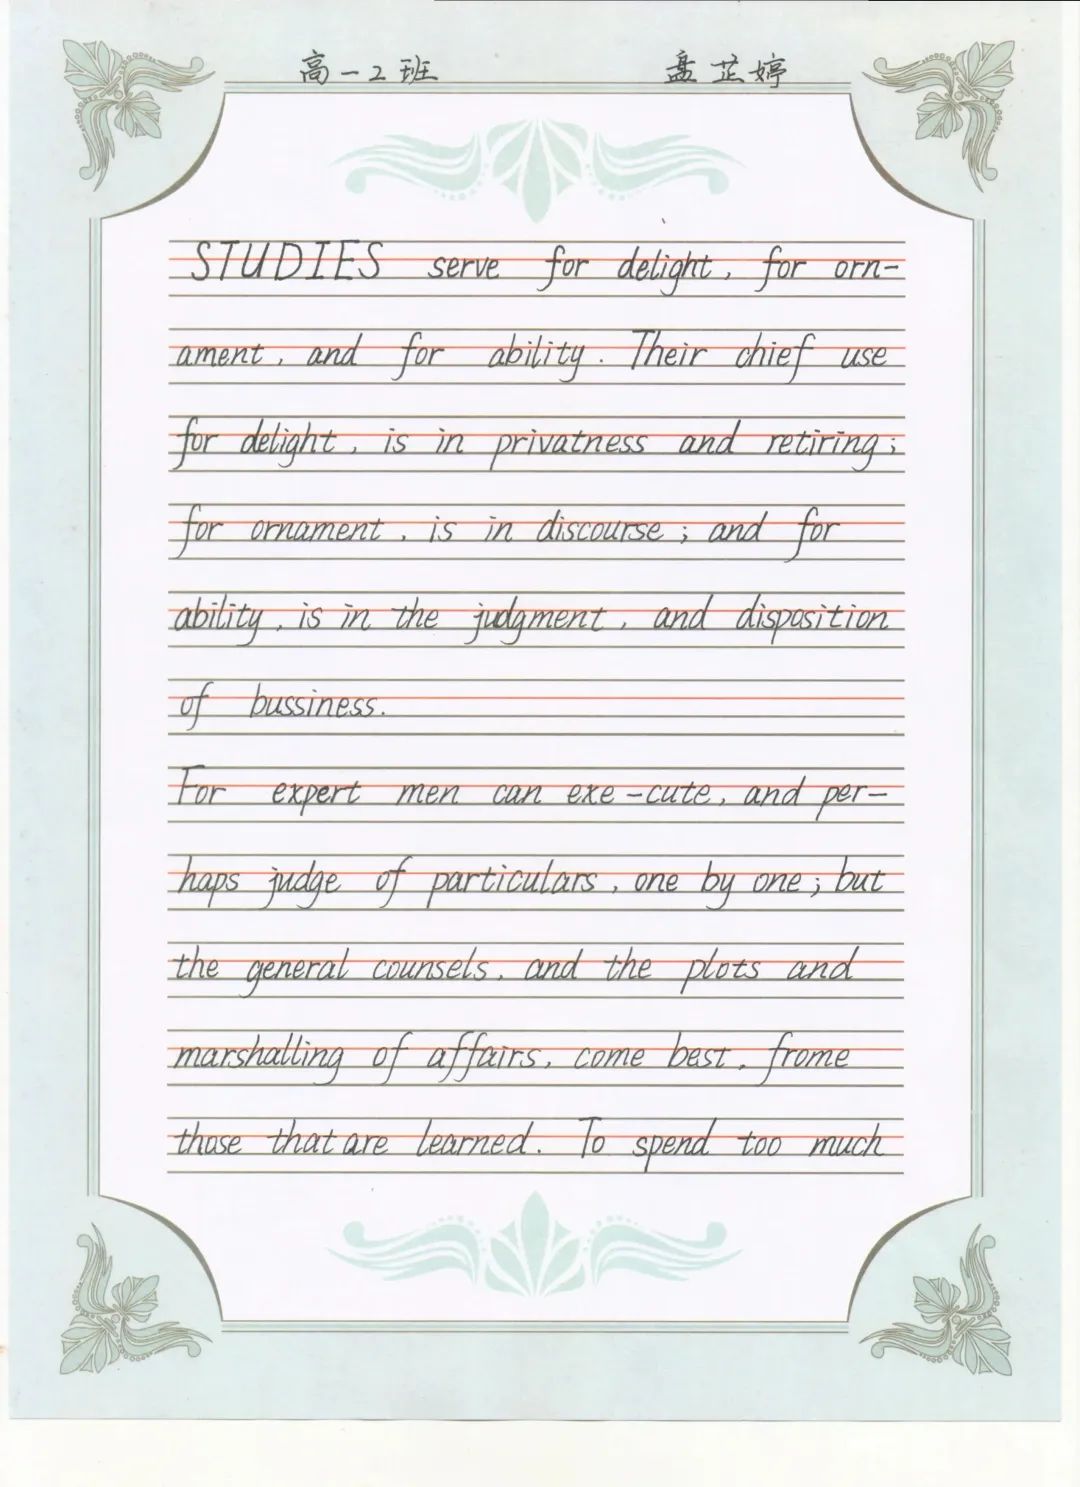 高一2班 盘芷婷
STUDIES serve for delight, for orn-
ament, and for ability. Their chief use
for delight, is in privatness and retiring;
for ornament, is in discourse; and for
ability, is in the judgment, and disposition
of bussiness.
For expert men can exe-cute, and per-
haps judge of particulars, one by one; but
the general counsels, and the plots and
marshalling of affairs, come best, frome
those that are learned. To spend too much